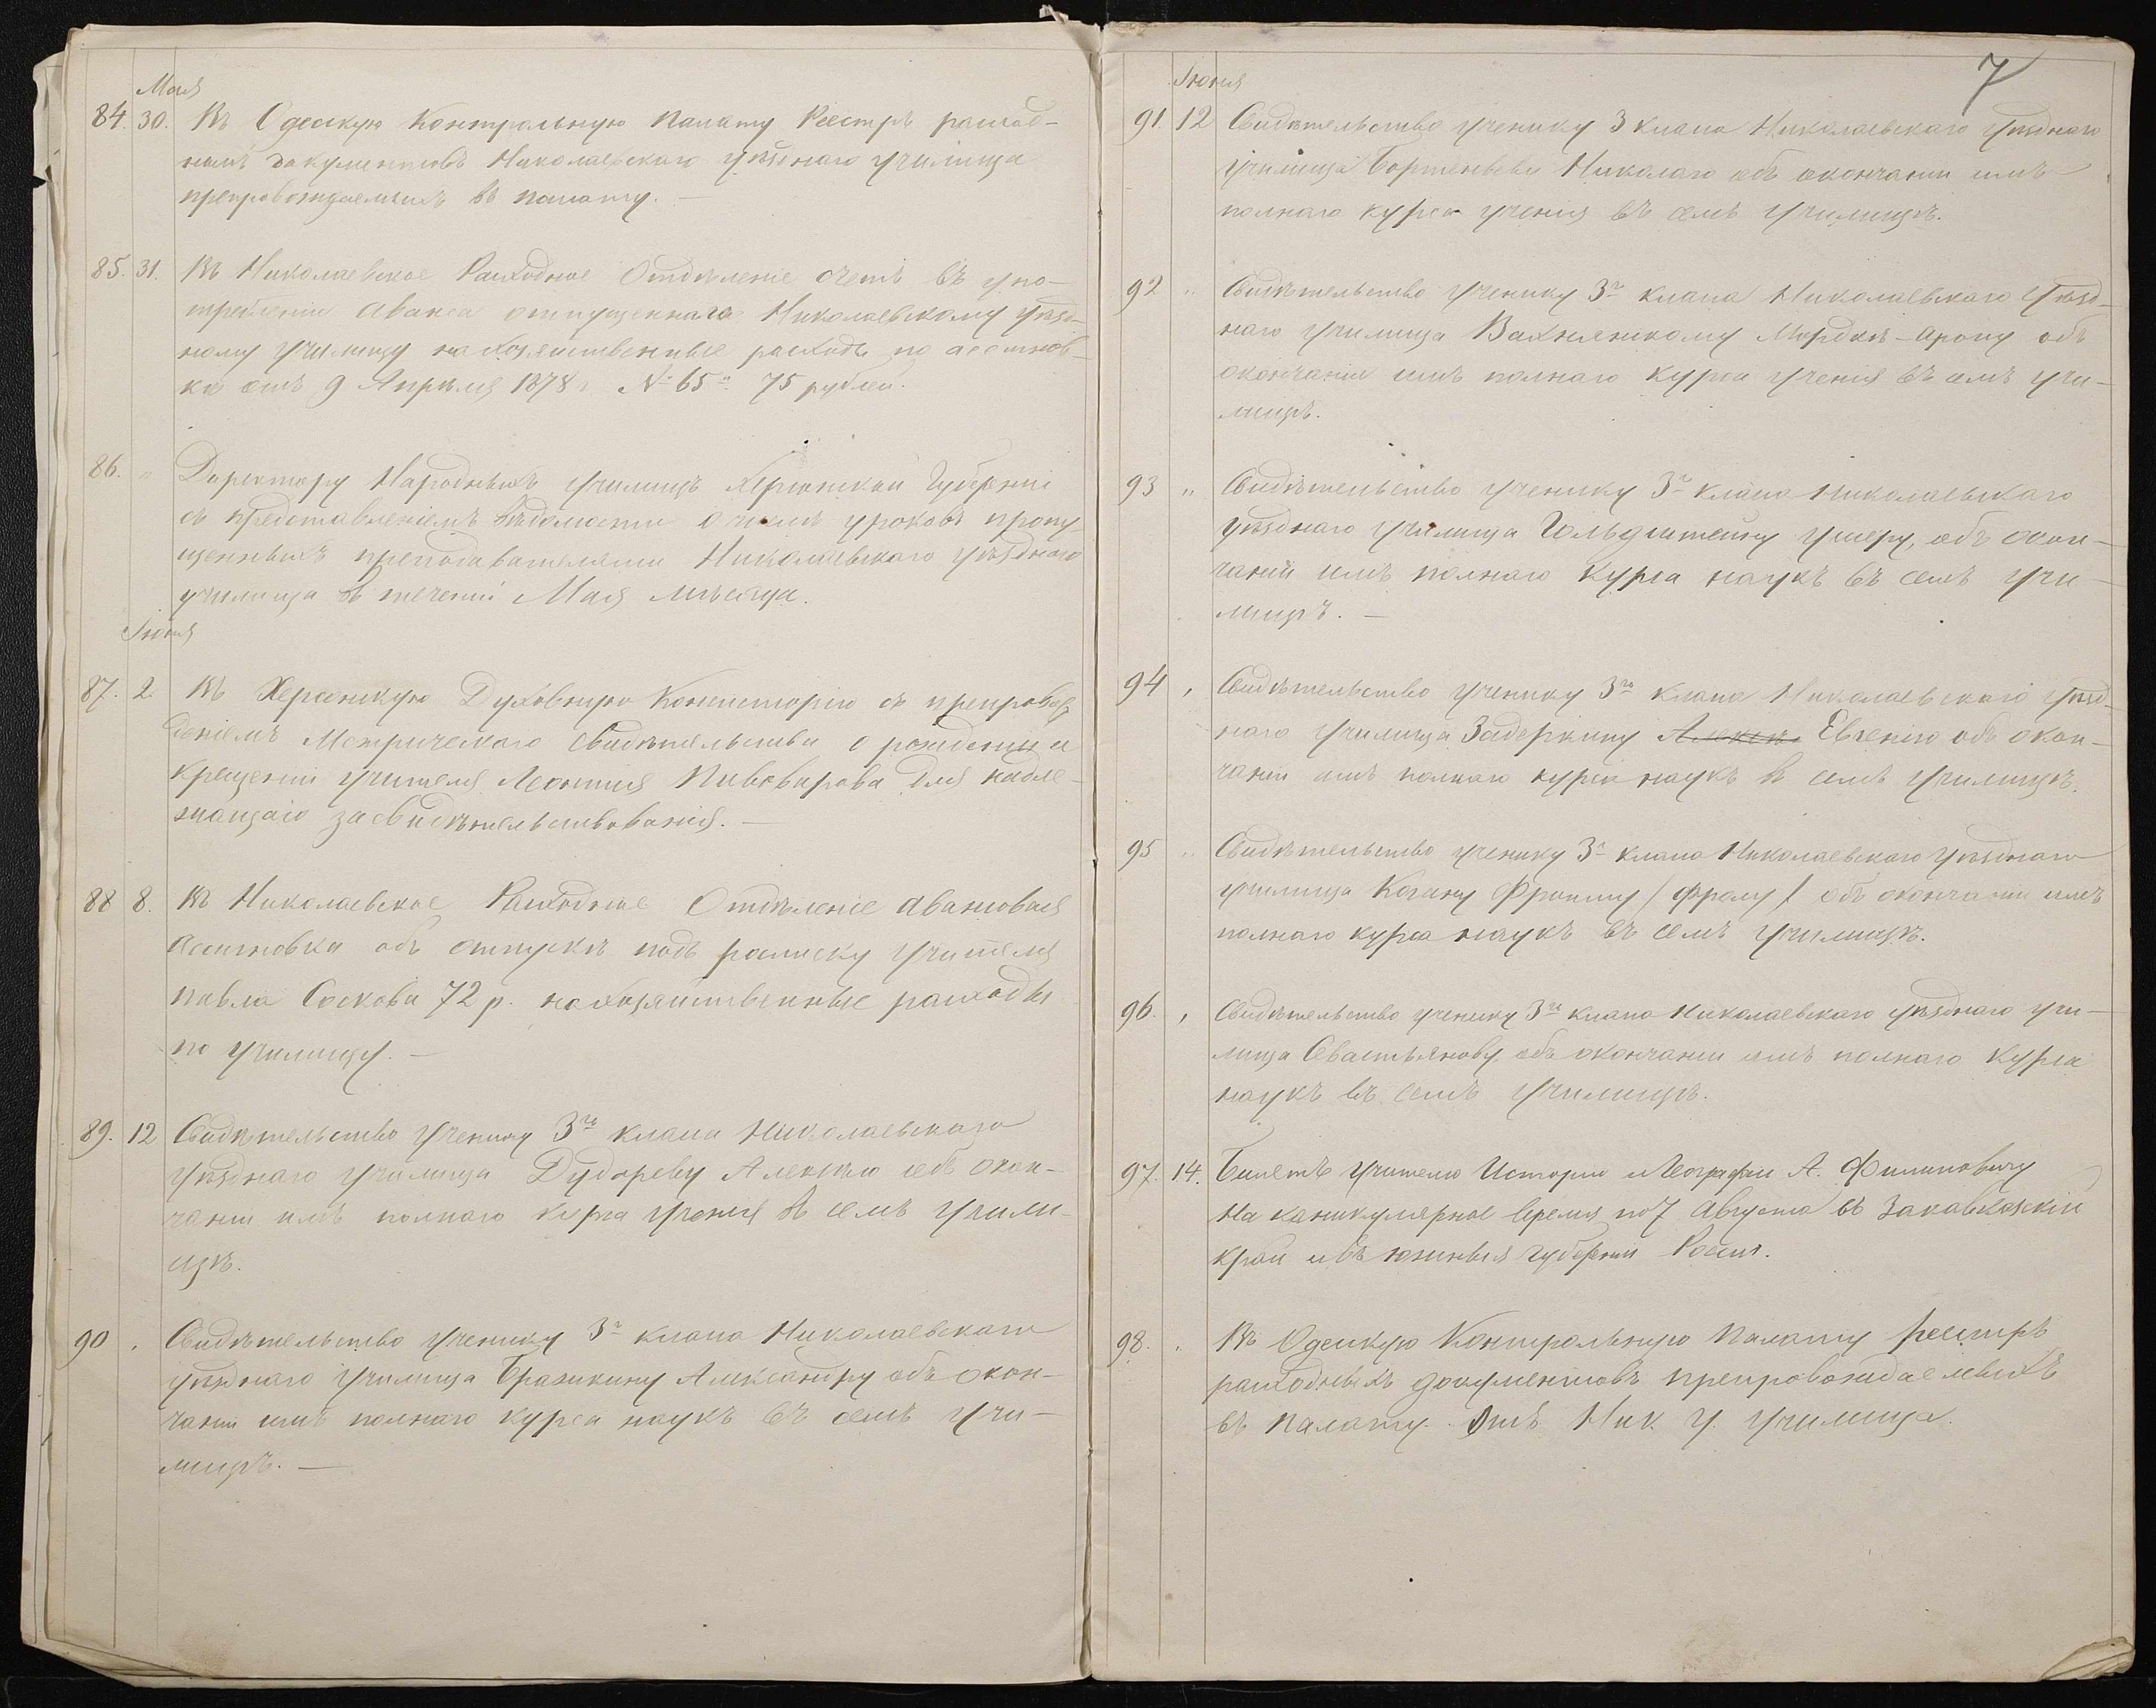 Мая
84. 30. Въ Одескую Контрольную Палату Реестръ расход-
ныхъ документовъ Николаевскаго уѣзднаго училища
препровождаемыхъ въ палату. —
85. 31. Въ Николаевское Расходное Отдѣленіе счетъ въ упо-
требленіи аванса отпущеннаго Николаевскому уѣзд-
ному училищу на хозяйственные расходы по ассигнов-
кѣ отъ 9 Апрѣля 1878 г. № 65 75 рублей.
86. " Директору Народныхъ училищъ Херсонской Губерніи
съ представленіемъ вѣдомости о числѣ уроковъ пропу-
щенныхъ преподавателями Николаевскаго уѣзднаго
училища въ теченіи Мая мѣсяца.
Іюня
87. 2 Въ Херсонскую Духовную Консисторію съ препровож-
деніемъ Метрическаго свидѣтельства о рожденіи и
крещеніи учителя Леонтія Пивоварова для надле-
жащаго засвидѣтельствованія. —
88 8. Въ Николаевское Расходное Отдѣленіе авансовая
Ассигновка объ отпускѣ подъ росписку учителя
Павла Соскова 72 р. на хозяйственные расходы
по училищу. —
89. 12 Свидѣтельство ученику 3го класса Николаевскаго
уѣзднаго училища Дудореву Алексѣю объ окон-
чаніи имъ полнаго курса ученія въ семъ учили-
щѣ.
90 " Свидѣтельство ученику 3го класса Николаевскаго
уѣзднаго училища Бражкину Александру объ окон-
чаніи имъ полнаго курса наукъ въ семъ учи-
лищѣ. —
7
Іюня
91. 12 Свидѣтельство ученику 3 класса Николаевскаго уѣзднаго
училища Бортеневу Николаю объ окончаніи имъ
полнаго курса ученія въ семъ училищѣ.
92 " Свидѣтельство ученику 3го класса Николаевскаго уѣзд-
наго училища Вахнянскому Мордкѣ-Арону объ
окончаніи имъ полнаго курса ученія въ семъ учи-
лищѣ.
93 " Свидѣтельство ученику 3го класса Николаевскаго
уѣзднаго училища Гольдштейну Ушеру, объ окон-
чаніи имъ полнаго курса наукъ въ семъ учи-
лищѣ. —
94 " Свидѣтельство ученику 3го класса Николаевскаго уѣзд-
наго училища Задеркину Евгенію объ окон-
чаніи имъ полнаго курса наукъ въ семъ училищѣ.
95 " Свидѣтельство ученику 3го класса Николаевскаго уѣзднаго
училища Когану Фроиму / Фрому / объ окончаніи имъ
полнаго курса наукъ въ семъ училищѣ.
96. " Свидѣтельство ученику 3го класса Николаевскаго уѣзднаго учи-
лища Севастьянову объ окончаніи имъ полнаго курса
наукъ въ семъ училищѣ.
97. 14. Билетъ учителю Исторіи и Географіи А. Филиповичу
на каникулярное время по 7 Августа въ Закавказскій
край и въ южныя губерніи Россіи.
98. " Въ Одескую Контрольную Палату реестръ
расходныхъ документовъ препровождаемыхъ
въ Палату. Отъ Ник. У. училища.